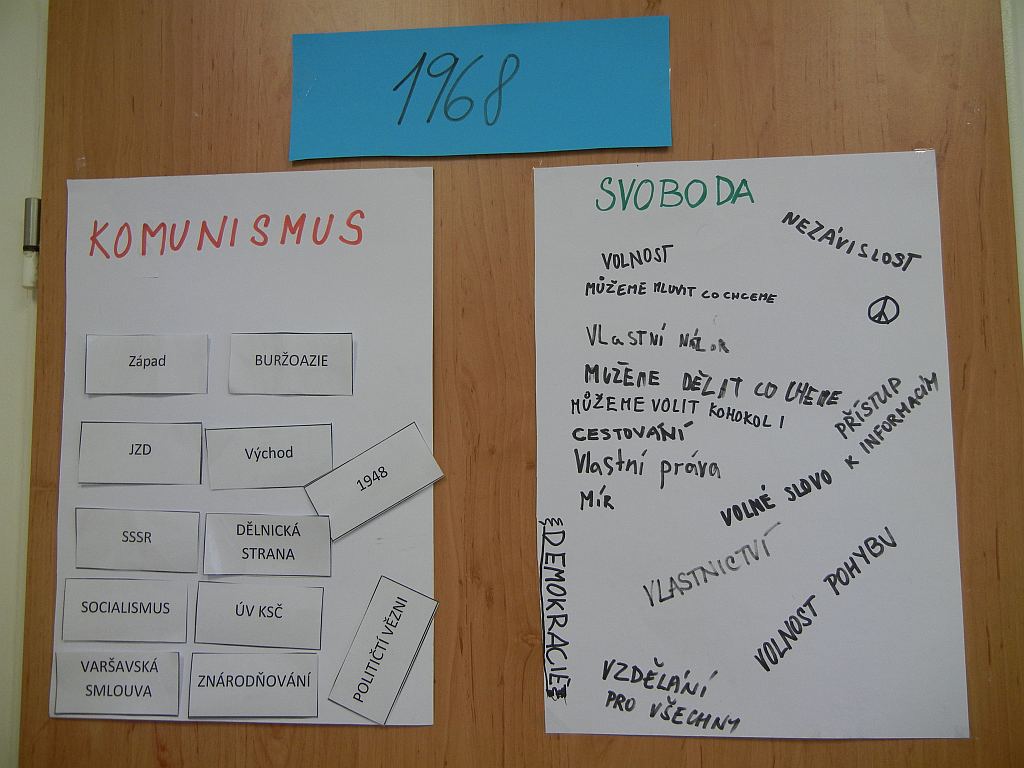 1968
KOMUNISMUS
Západ
BURŽOAZIE
JZD
Východ
1948
SSSR
DĚLNICKÁ
STRANA
SOCIALISMUS
ÚV KSČ
POLITIČTÍ VĚZNI
VARŠAVSKÁ
SMLOUVA
ZNÁRODŇOVÁNÍ
SVOBODA
NEZÁVISLOST
VOLNOST
MŮŽEME MLUVIT CO CHCEME
Vlastní
MUŽEME DĚLIT CO
MŮŽEME VOLIT KOHOKOLI
CESTOVÁNÍ
Vlastní práva
MÍR
PŘÍSTUP
K INFORMACÍM
VOLNÉ SLOVO
VLASTNICTVÍ
VOLNOST POHYBU
DEMOKRACIE
VZDĚLÁNÍ
PRO VŠECHNY